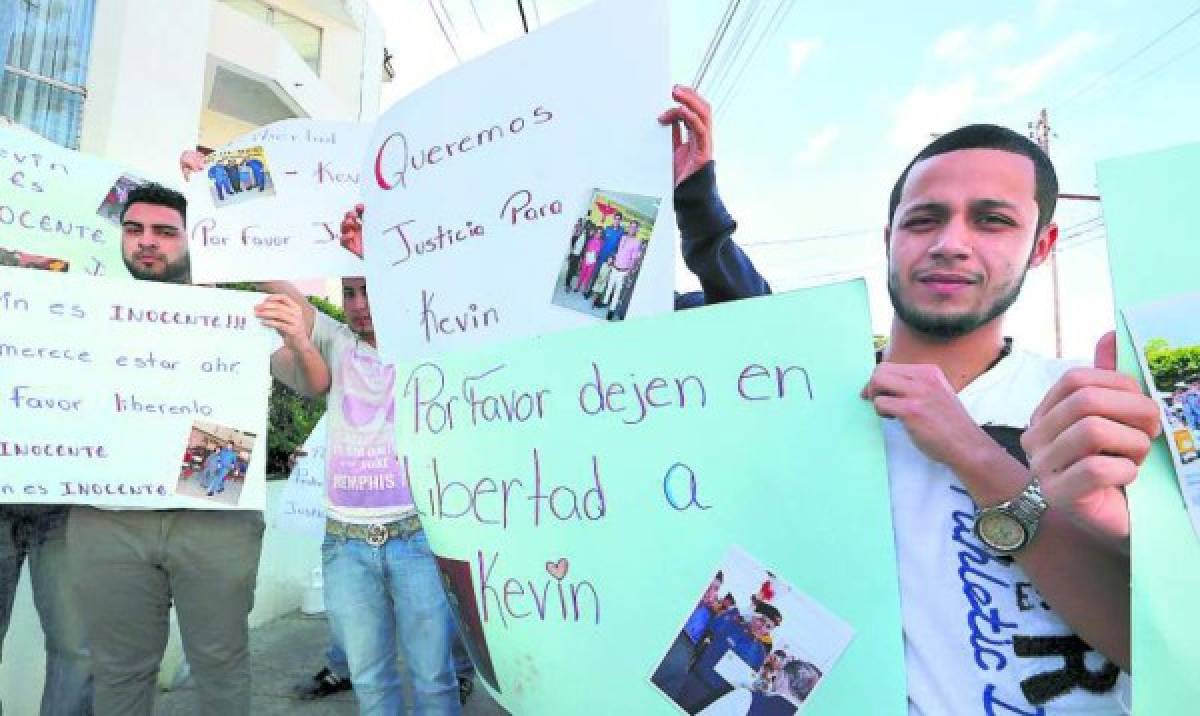 es
OCENTE
Kevin
Por Favor
Queremos
Justicia Para
Kevin
in es INOCENTE!!!
merece estar ahi.
Favor liberenlo
INOCENTE
n es INOCENTE
MEMPHIS
Por Favor dejen en
libertad a
Kevin
Athletic D